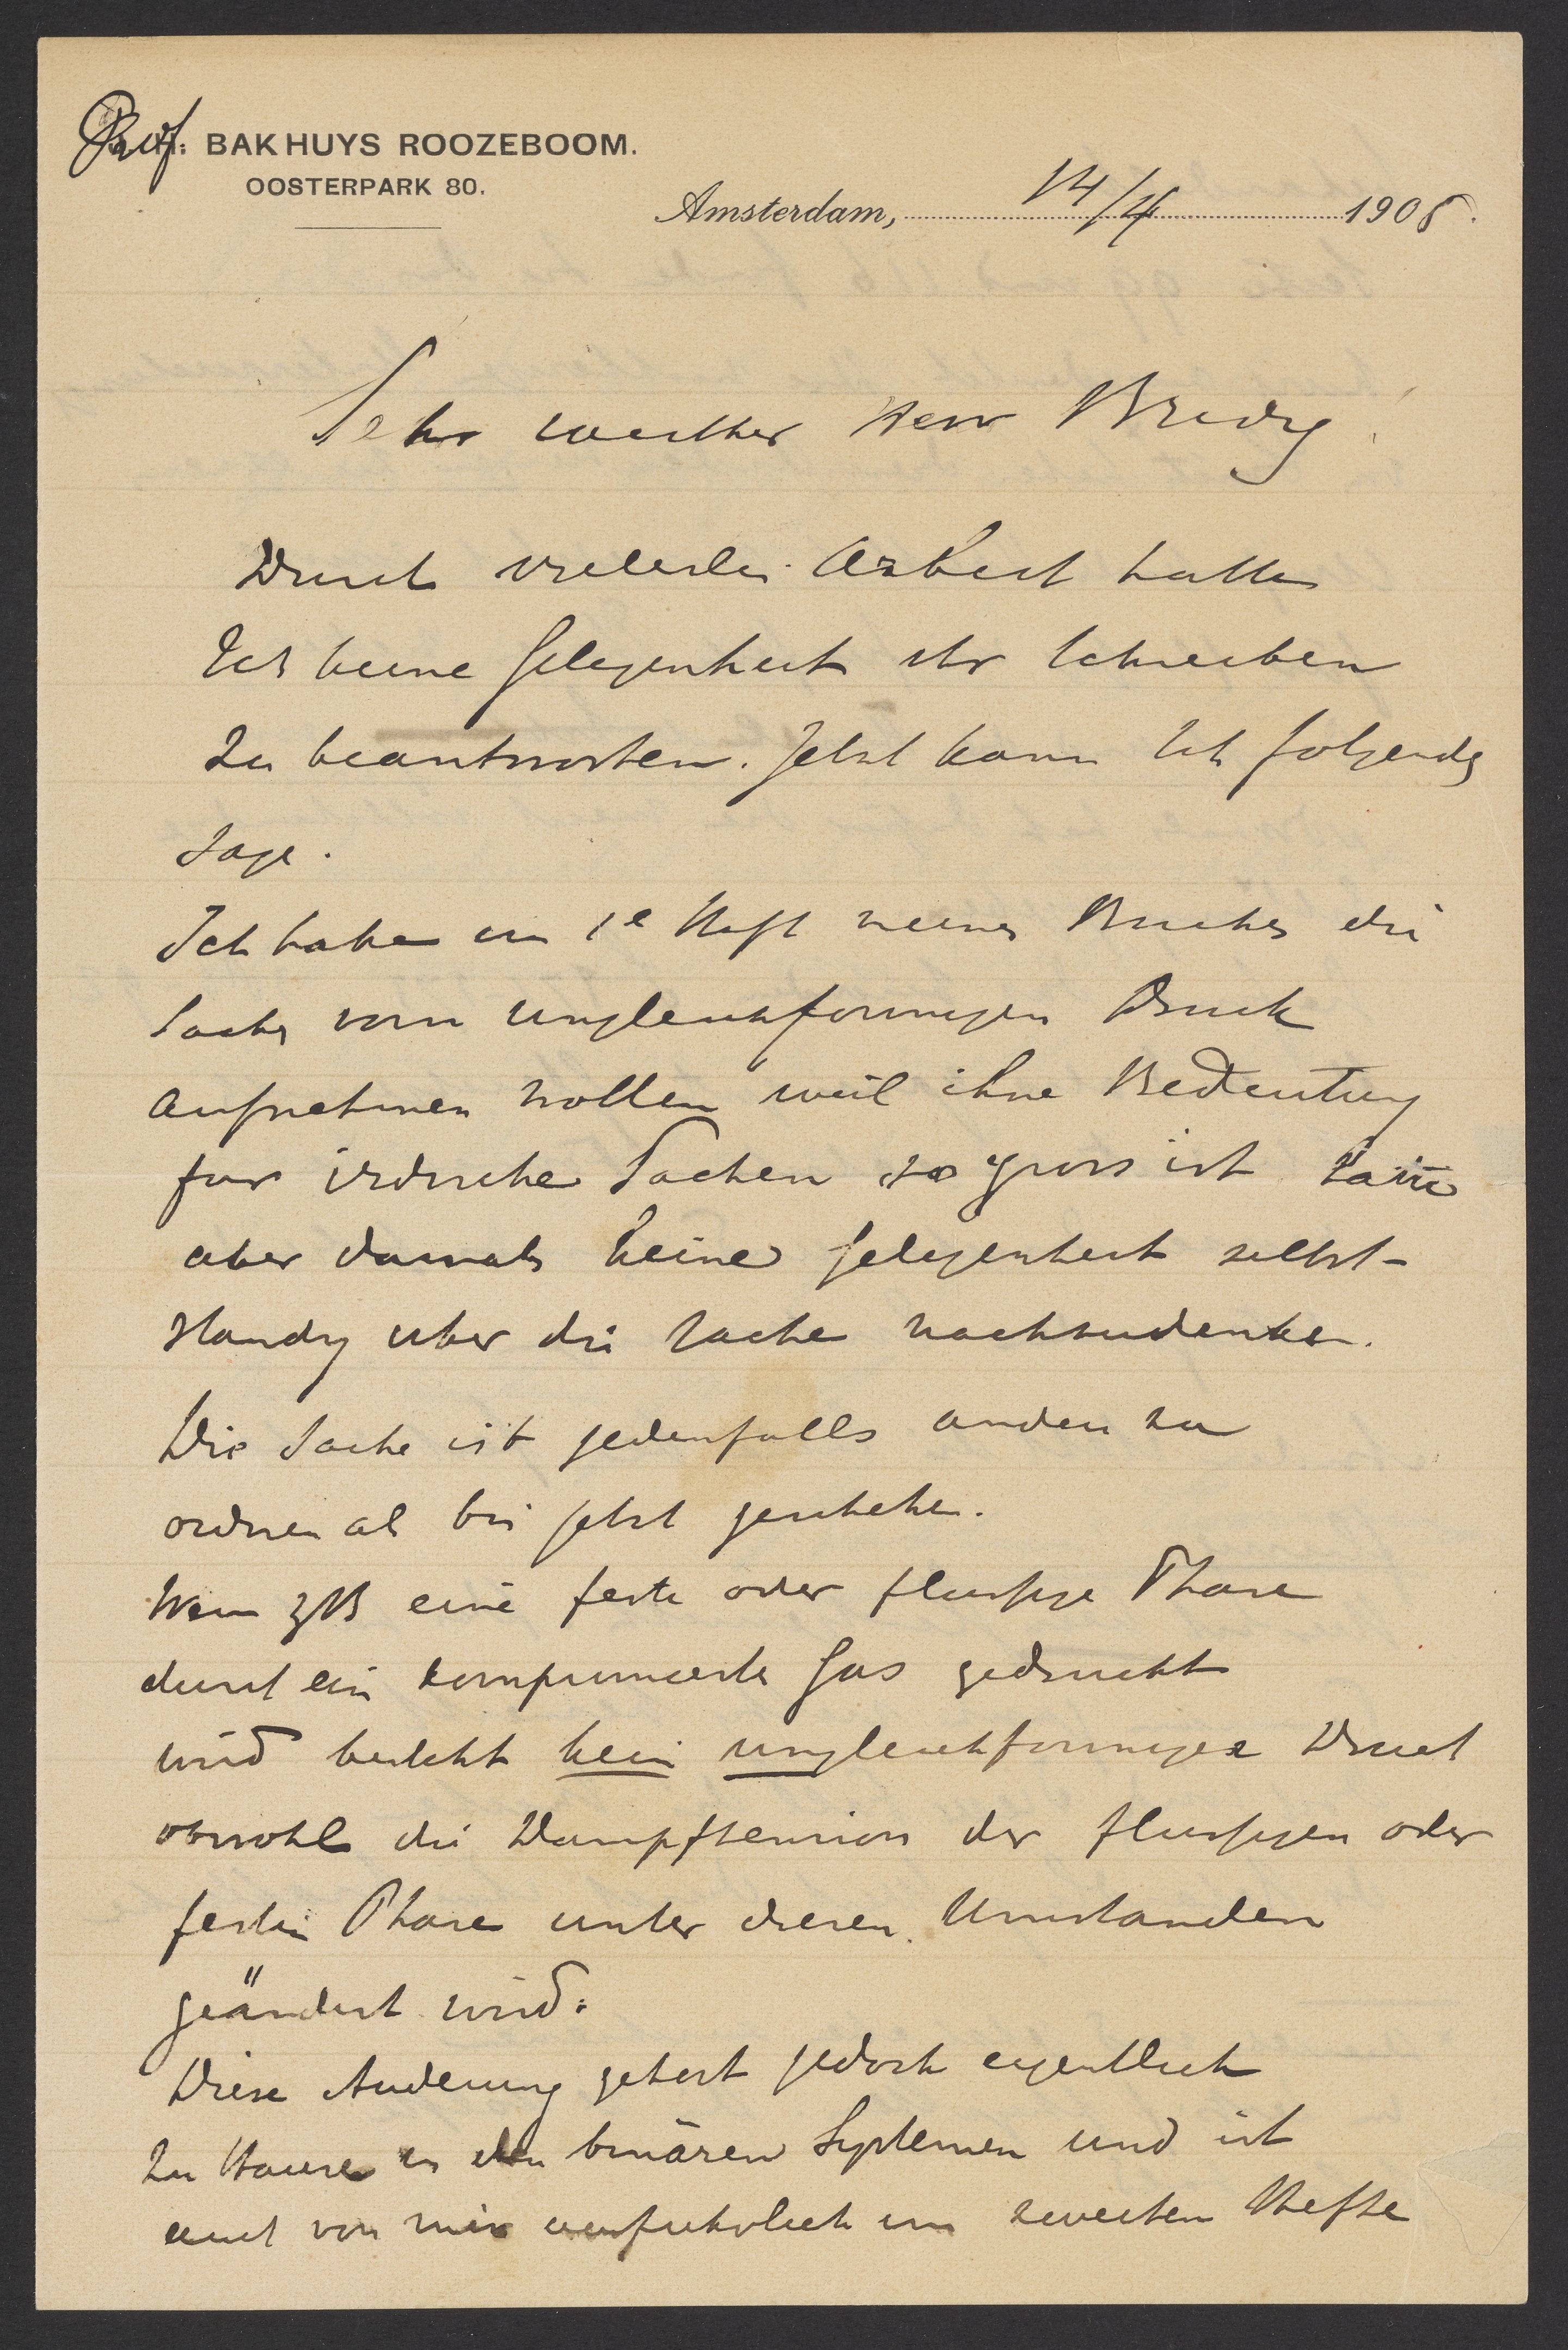 Prof. BAKHUYS ROOZEBOOM.
OOSTERPARK 80.
Amsterdam, 14/4 1905.
Sehr werther Herr
Durch vielerlei Arbeit hatte
Ich keine Gelegenheit ihr Schreiben
zu beantworten. Jetzt kann Ich folgends
sage.
Ich habe im 1e Heft meines Buches die
Sache vom ungleichformigen Druck
aufnehmen wollen weil ihre Bedeutung
fur irdische Sachen so gross ist
aber damals keine Gelegenheit selbst-
standig uber die Sache nachzudenken.
Die Sache ist jedenfalls anders zu
ordnen als bis jetzt geschehen.
Wenn zB eine feste oder flussige Phase
durch ein komprimierte Gas gedruckt
wird besteht kein ungleichformiger Druck
obwohl die Dampftension der flussigen oder
festen Phase unter diesen Umstanden
geändert wird.
Diese Anderung gehort jedoch eigentlich
zu Hause in den binären Systemen und ist
auch von mir ausfuhrlich im zweiten Hefte